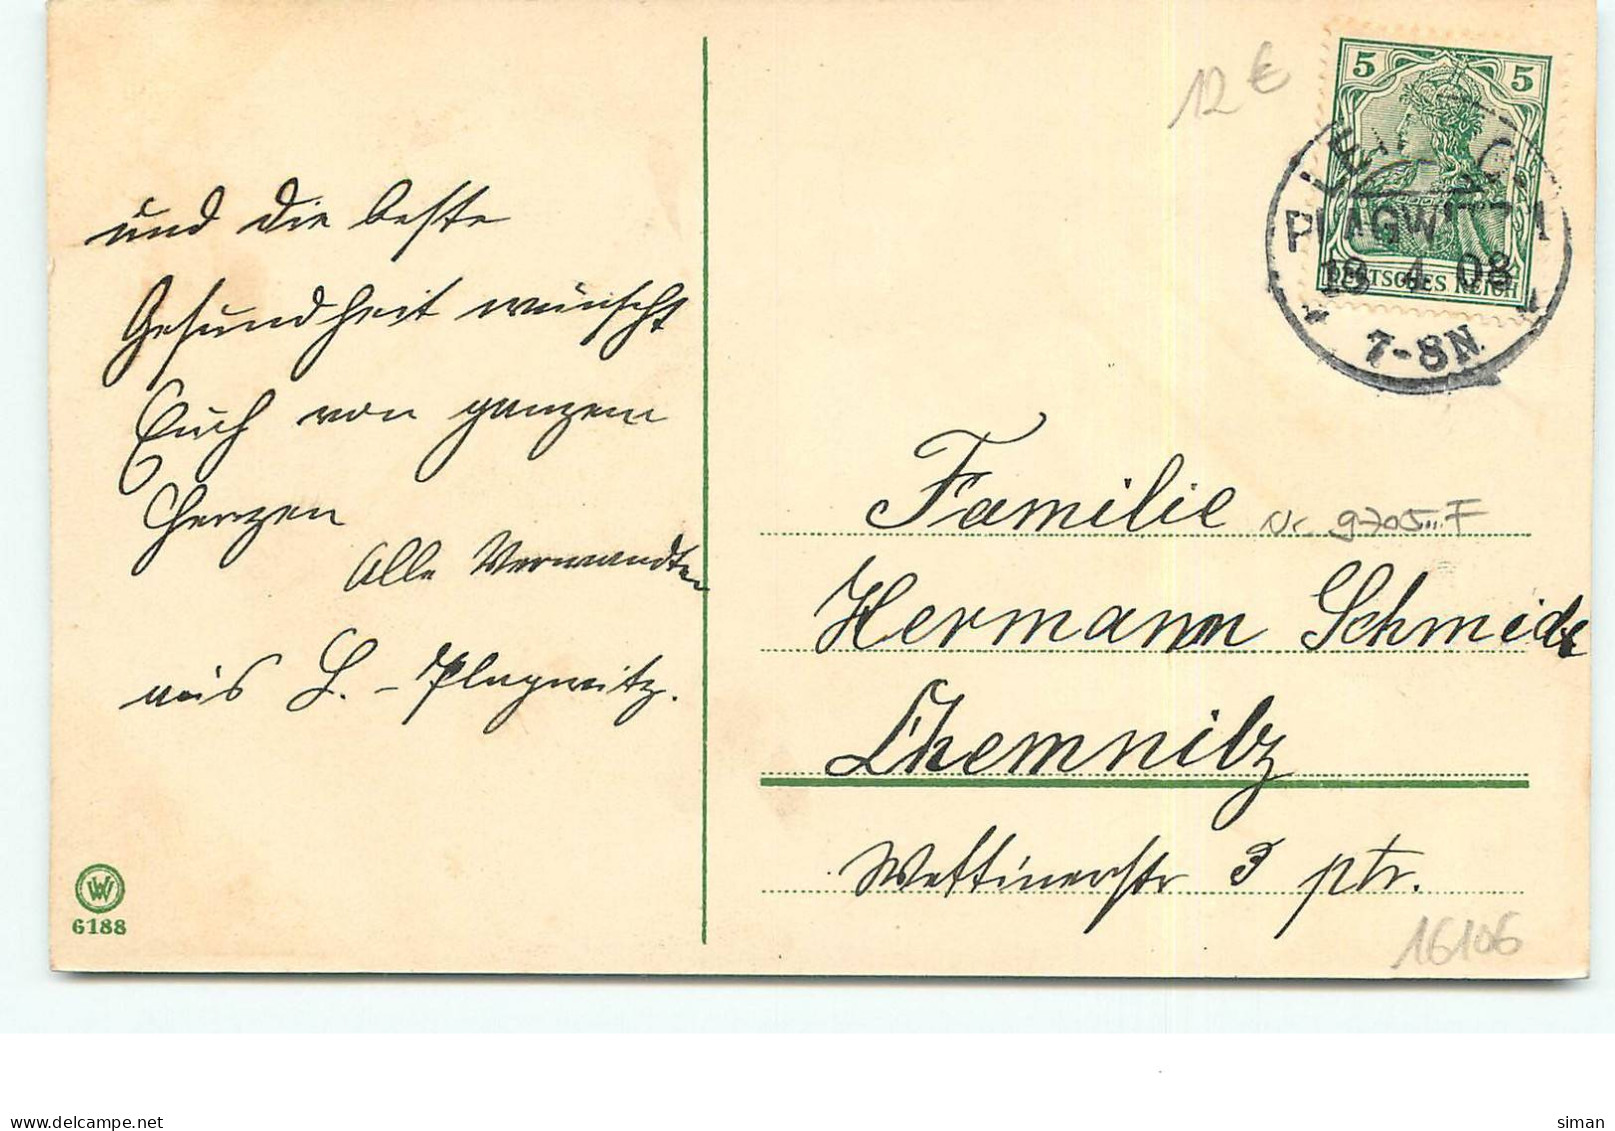 und die beste
Gesundheit wünscht
Euch von ganzem
Herzen
Alle Verwandten
aus L.-Plagwitz.
WW
6188
12 €
5 5
DEUTSCHES REICH
LEIPZIG
PLAGWITZ 1
4 08
7-8N.
Familie
Nr 9705 F
Hermann Schmidt
Chemnitz
Wettinerstr 3 ptr.
16106
www.delcampe.net
siman